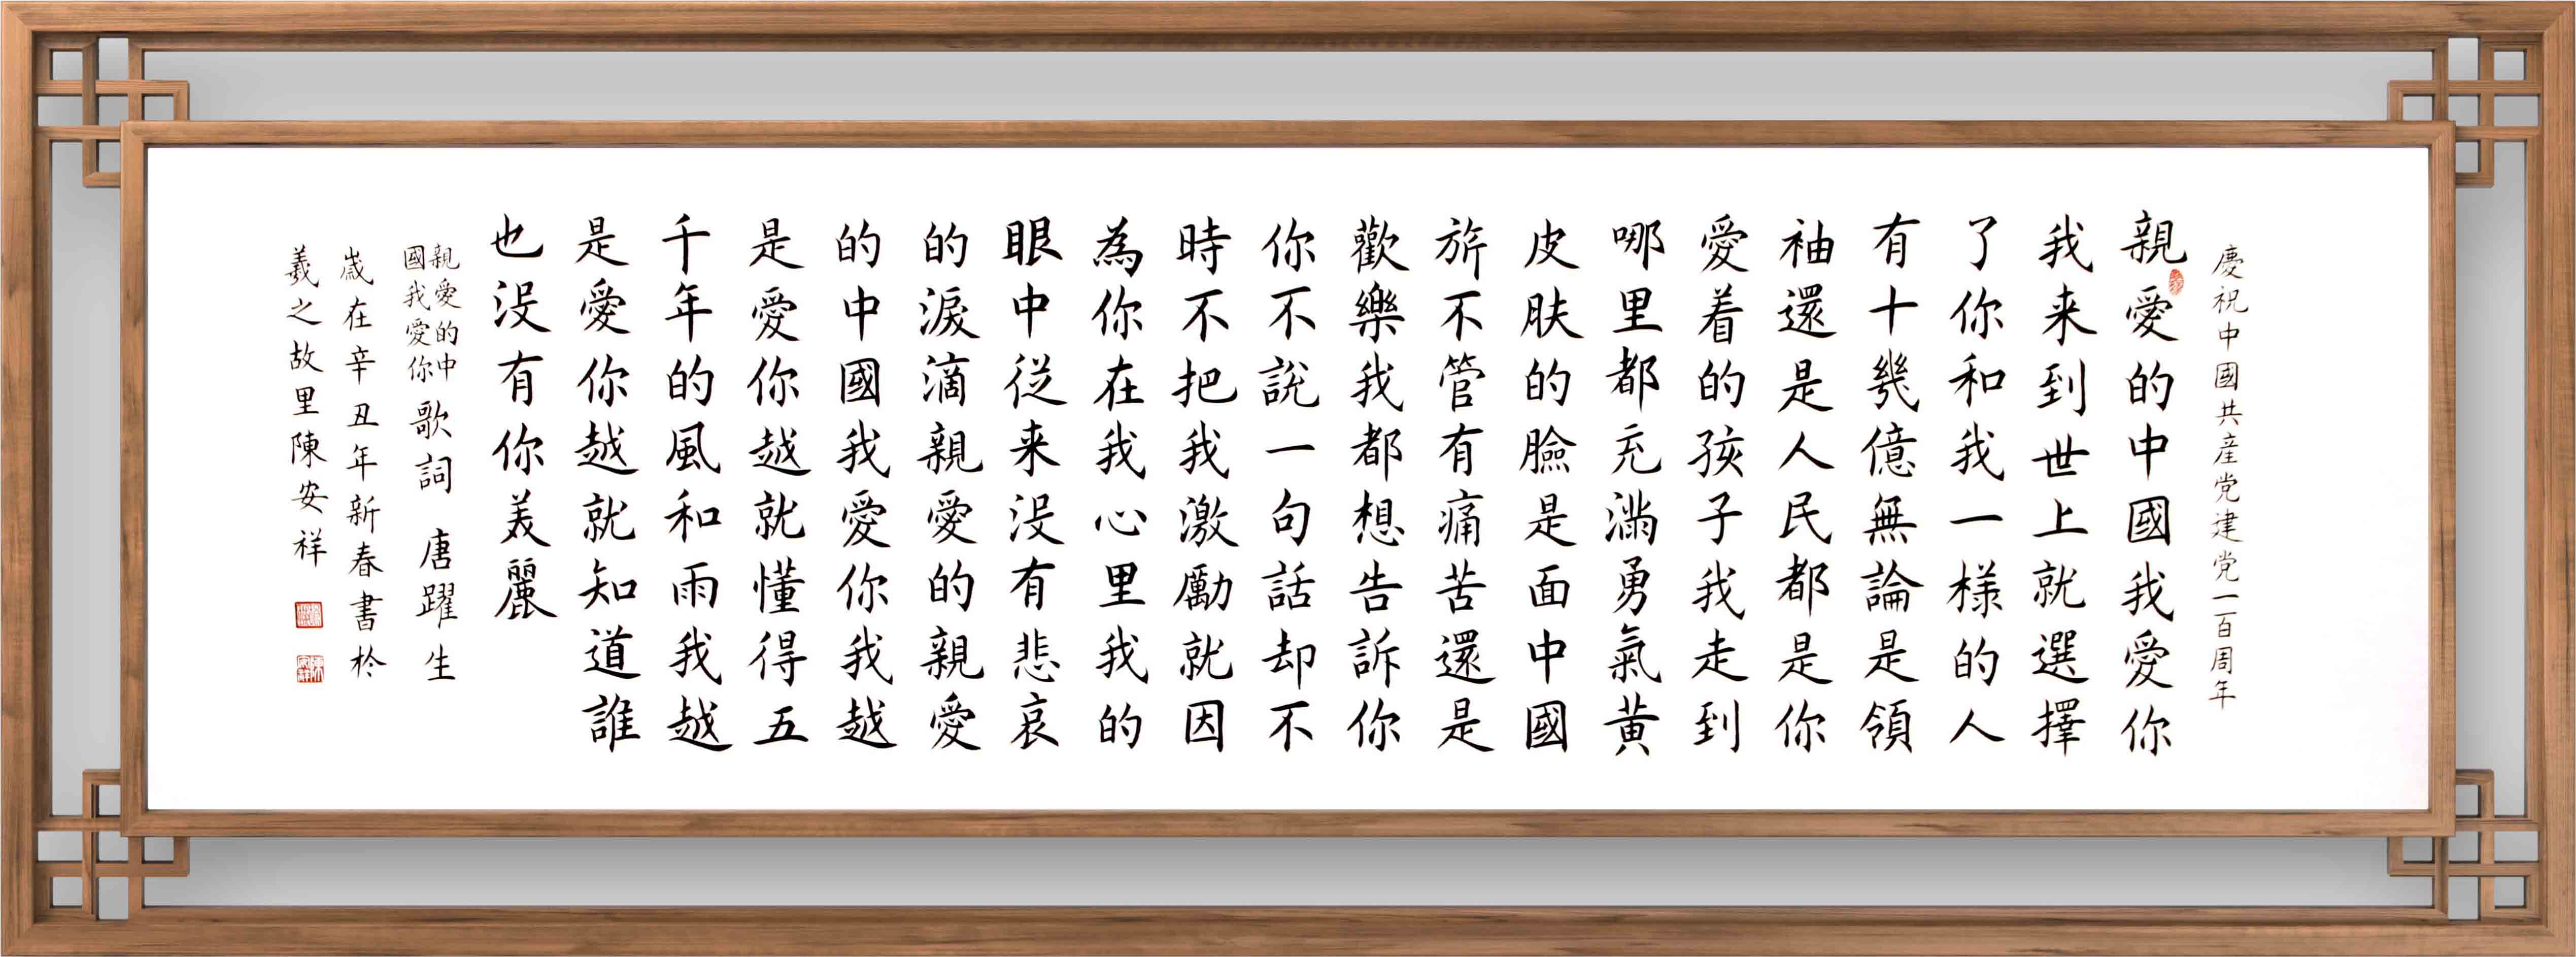 慶祝中國共産党建党一百周年
親愛的中國我愛你
我来到世上就選擇
了你和我一樣的人
有十幾億無論是領
袖還是人民都是你
愛着的孩子我走到
哪里都充滿勇氣黄
皮肤的臉是面中國
旂不管有痛苦還是
歡樂我都想告訴你
你不説一句話却不
時不把我激勵就因
為你在我心里我的
眼中從来没有悲哀
的淚滴親愛的親愛
的中國我愛你我越
是愛你越就懂得五
千年的風和雨我越
是愛你越就知道誰
也没有你美麗
親愛的中
國我愛你
歌詞 唐躍生
歳在辛丑年新春書於
羲之故里陳安祥